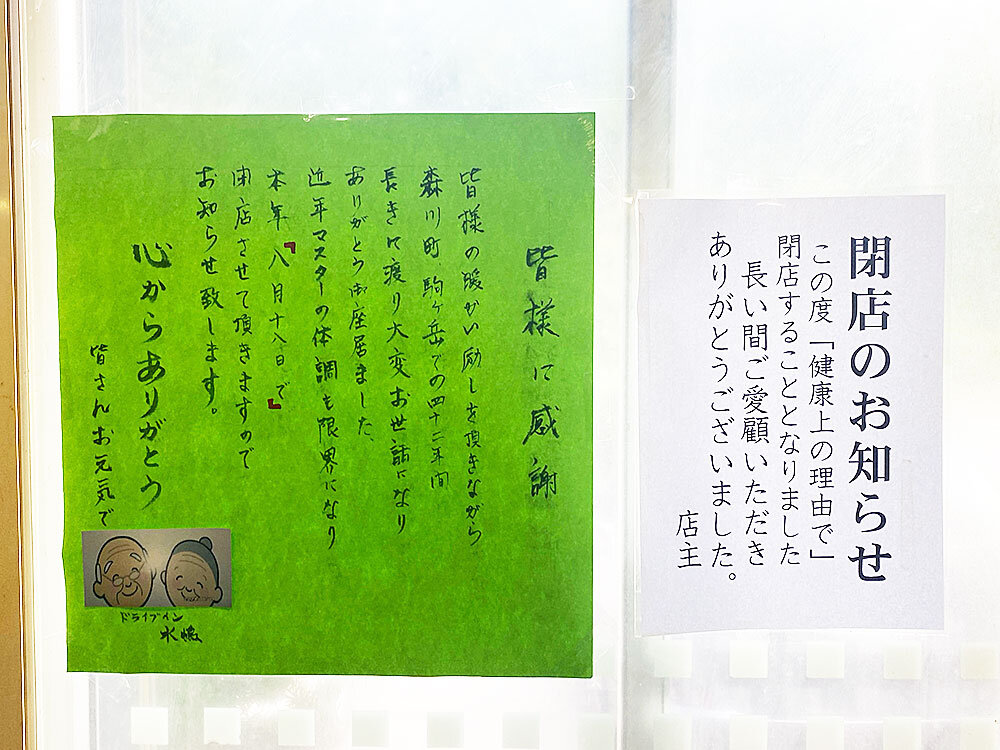 閉店のお知らせ
この度「健康上の理由で」
閉店することとなりました
長い間ご愛顧いただき
ありがとうございました。
店主
皆様に感謝
皆様の暖かい励しを頂きながら
森川町駒ヶ岳での四十二年間
長きに渡り大変お世話になり
ありがとう御座居ました、
近年マスターの体調も限界になり
本年『八月十八日で』
閉店させて頂きますので
お知らせ致します。
心からありがとう
皆さんお元気で
ドライブイン